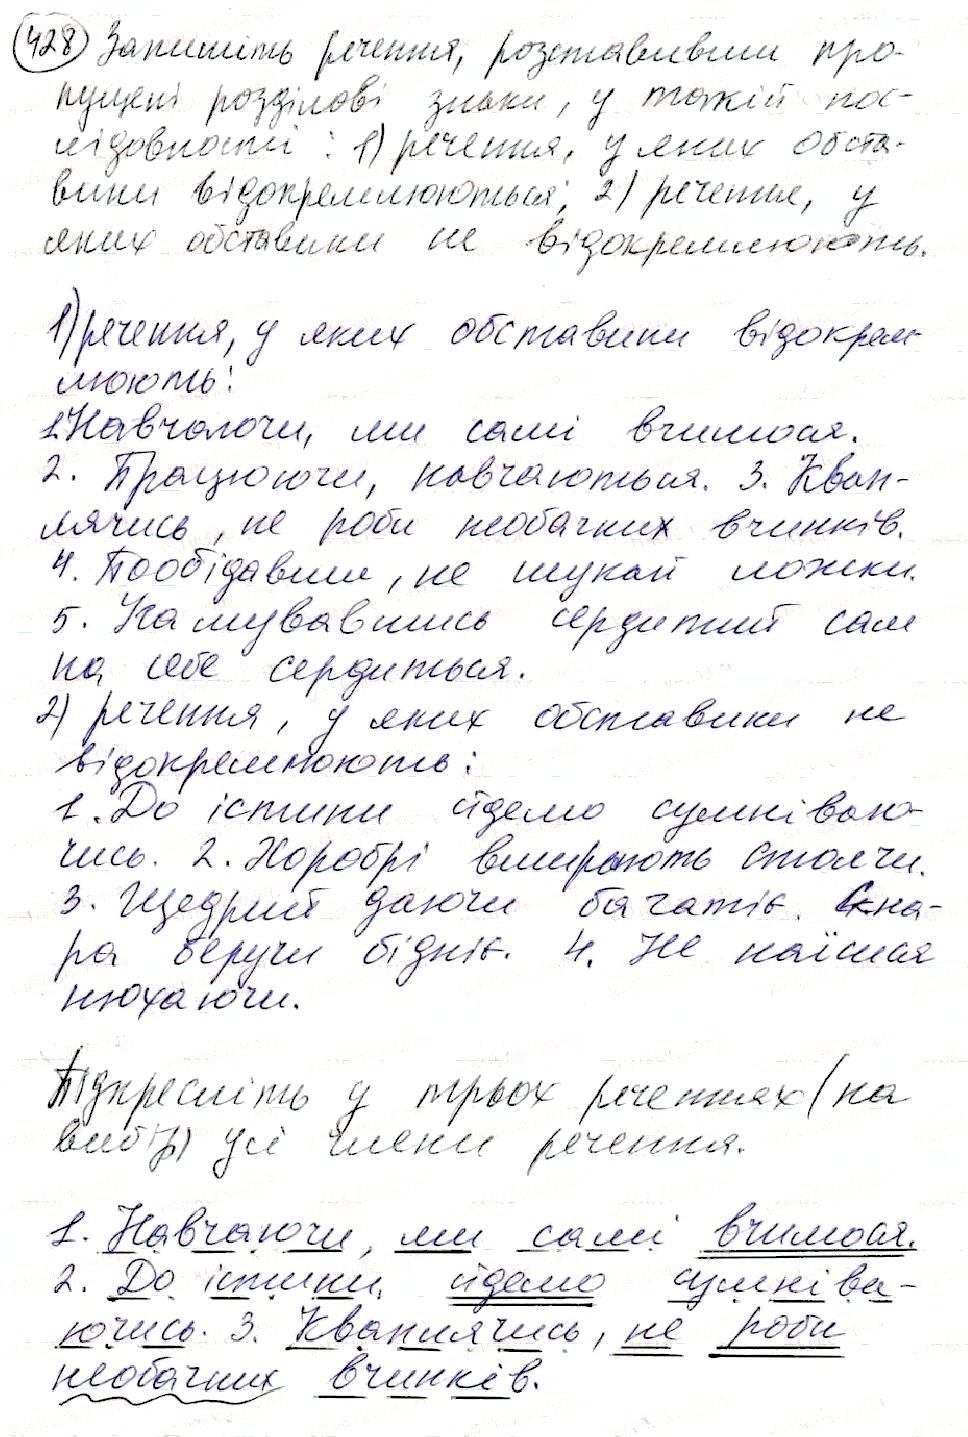 428 Запишіть речення, розставивши про-
пущені розділові знаки, у такій пос-
лідовності: 1) речення, у яких обста-
вини відокремлюються; 2) речення, у
яких обставини не відокремлюють.
1) речення, у яких обставини відокрем-
люють:
1. Навчаючи, ми самі вчимося.
2. Працюючи, навчаються. 3. Квап-
лячись, не роби необачних вчинків.
4. Пообідавши, не шукай ложки.
5. Нагнувавшись сердитий сам
на себе сердиться.
2) речення, у яких обставини не
відокремлюють:
1. До істини йдемо сумніваю-
чись. 2. Хоробрі вмирають стоячи.
3. Щедрий даючи багатіє. Скна-
ра беручи бідніє. 4. Не наїшся
нюхаючи.
Підкресліть у трьох реченнях (на
вибір) усі члени речення.
1. Навчаючи, ми самі вчимося.
2. До істини йдемо сумніва-
ючись. 3. Кваплячись, не роби
необачних вчинків.